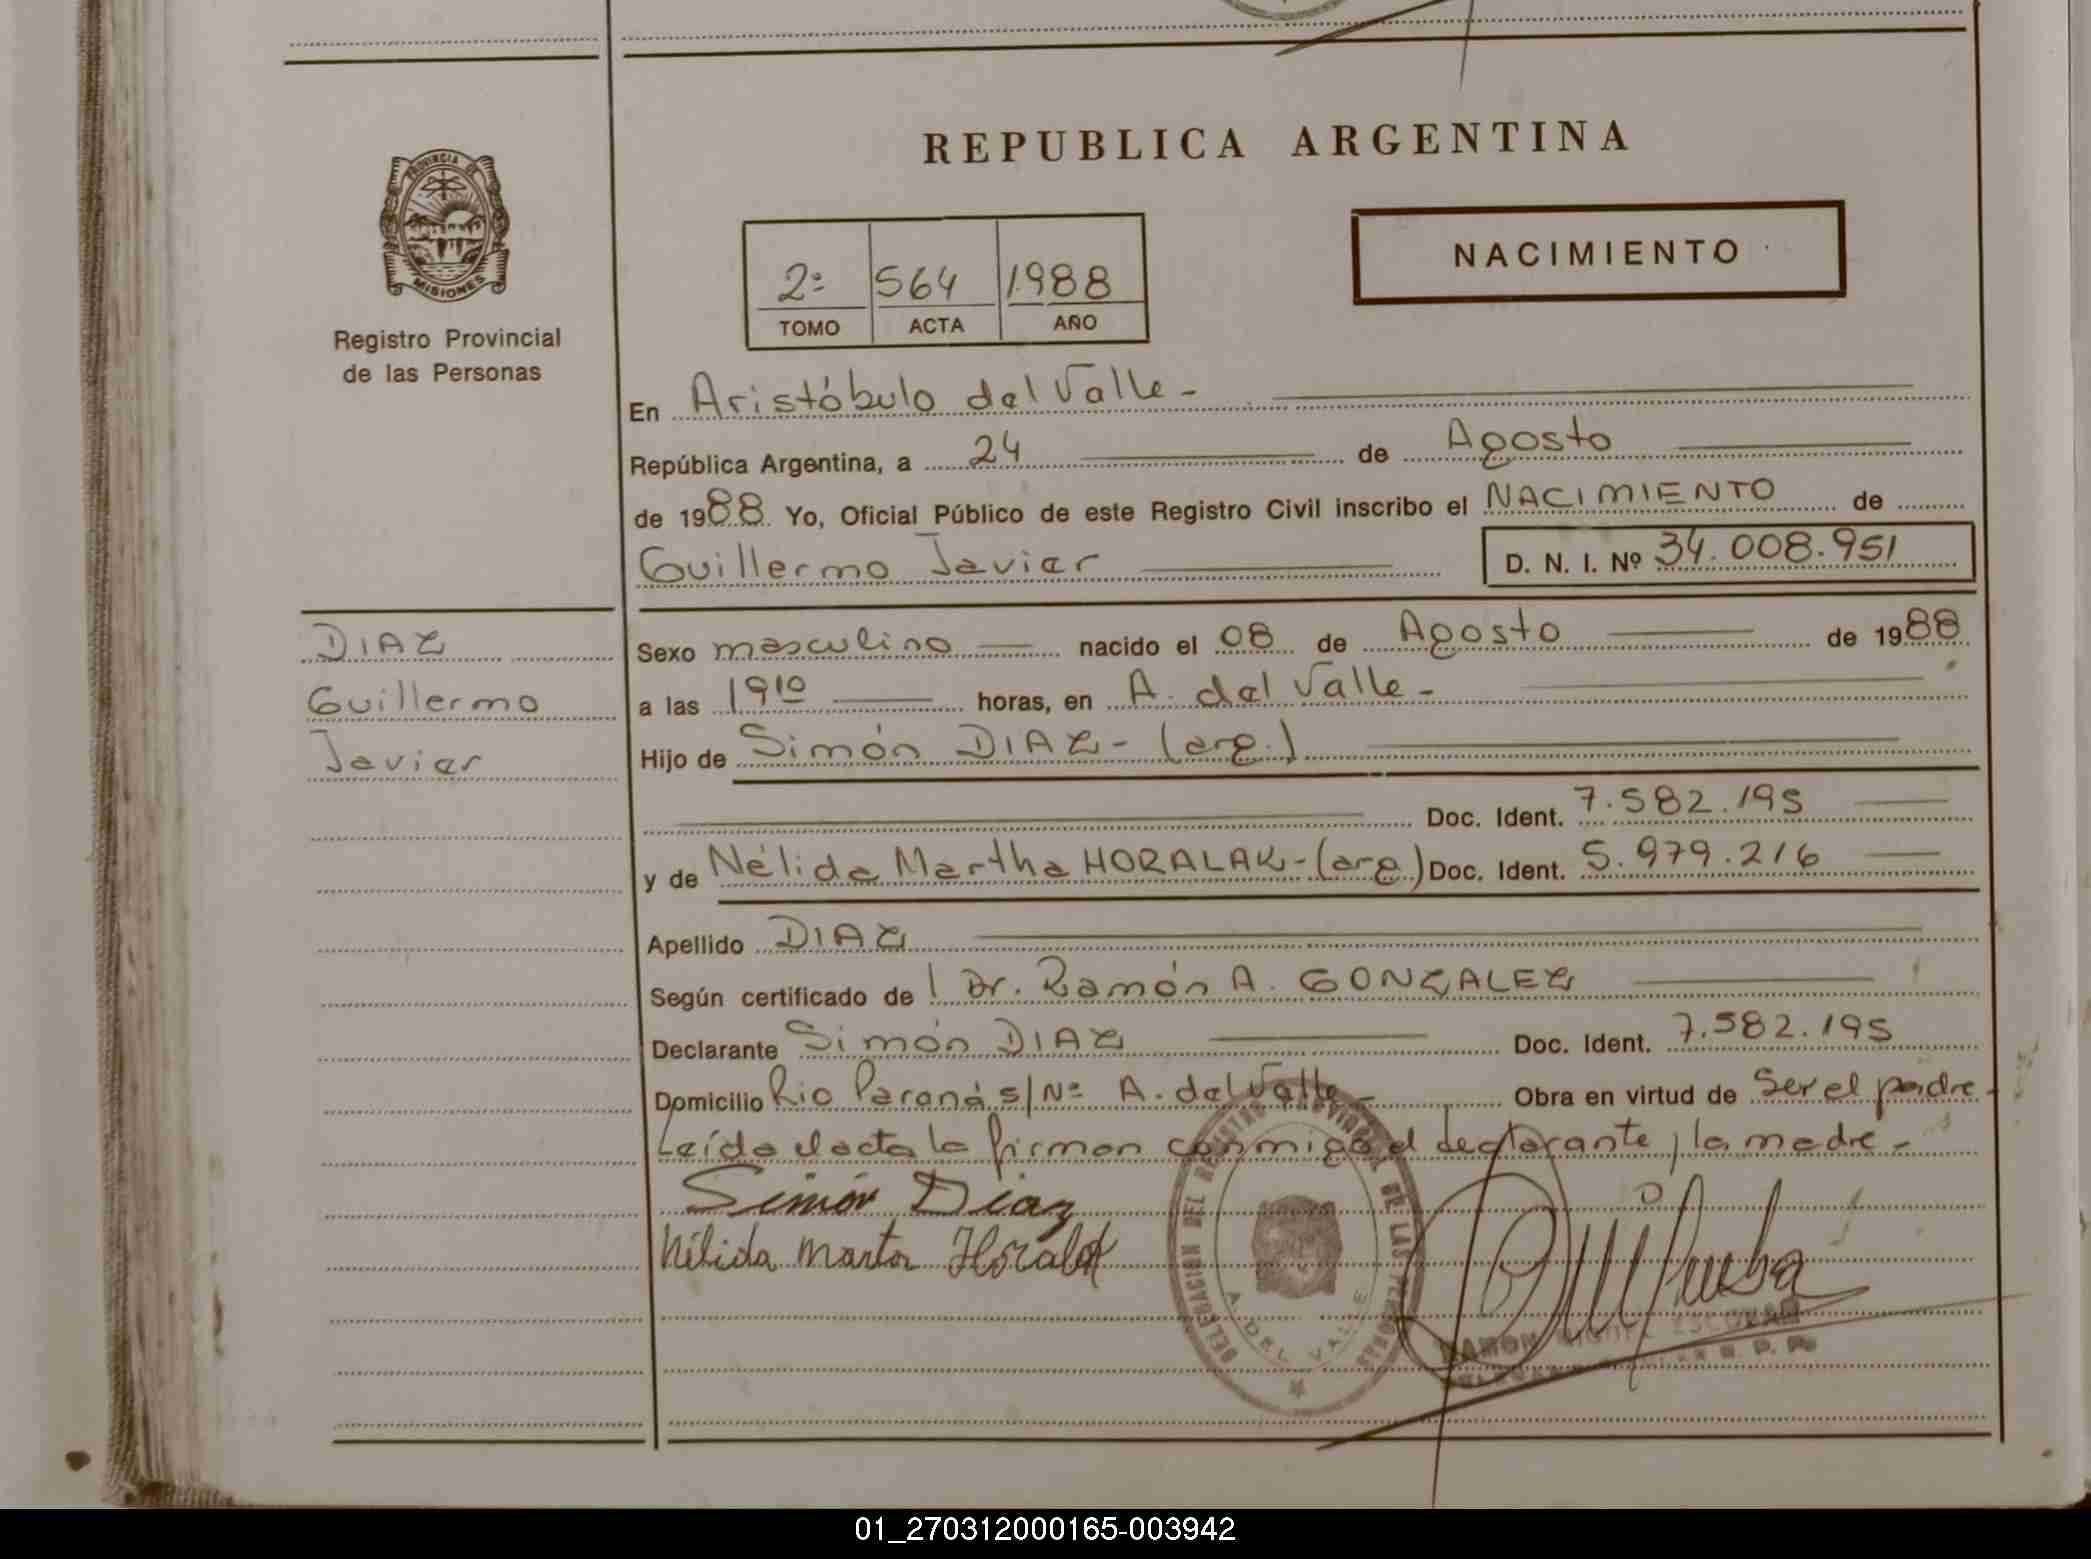 REPUBLICA ARGENTINA
PROVINCIA DE
MISIONES
Registro Provincial
de las Personas
NACIMIENTO
2º 564 1988
TOMO ACTA AÑO
En Aristóbulo del Valle -
República Argentina, a 24 de Agosto
de 1988 Yo, Oficial Público de este Registro Civil inscribo el NACIMIENTO de
Guillermo Javier D. N. I. Nº 34.008.951
DIAZ
Guillermo
Javier
Sexo masculino nacido el 08 de Agosto de 1988
a las 19 10 horas, en A. del Valle -
Hijo de Simón DIAZ - (arg.)
Doc. Ident. 7.582.195
y de Nélida Martha HORALAK - (arg) Doc. Ident. 5.979.216
Apellido DIAZ
Según certificado de l Dr. Ramón A. GONZALEZ
Declarante Simón DIAZ Doc. Ident. 7.582.195
Domicilio Rio Paraná s/Nº A. del Valle - Obra en virtud de Ser el padre -
Leída el acta la firman conmigo el declarante y la madre -
Simón Diaz
Nélida Marta
DELEGACION DEL REGISTRO PROVINCIAL DE LAS PERSONAS
A. DEL VALLE
RAMON MIGUEL ESCOBAR
R. P. P.
01_270312000165-003942